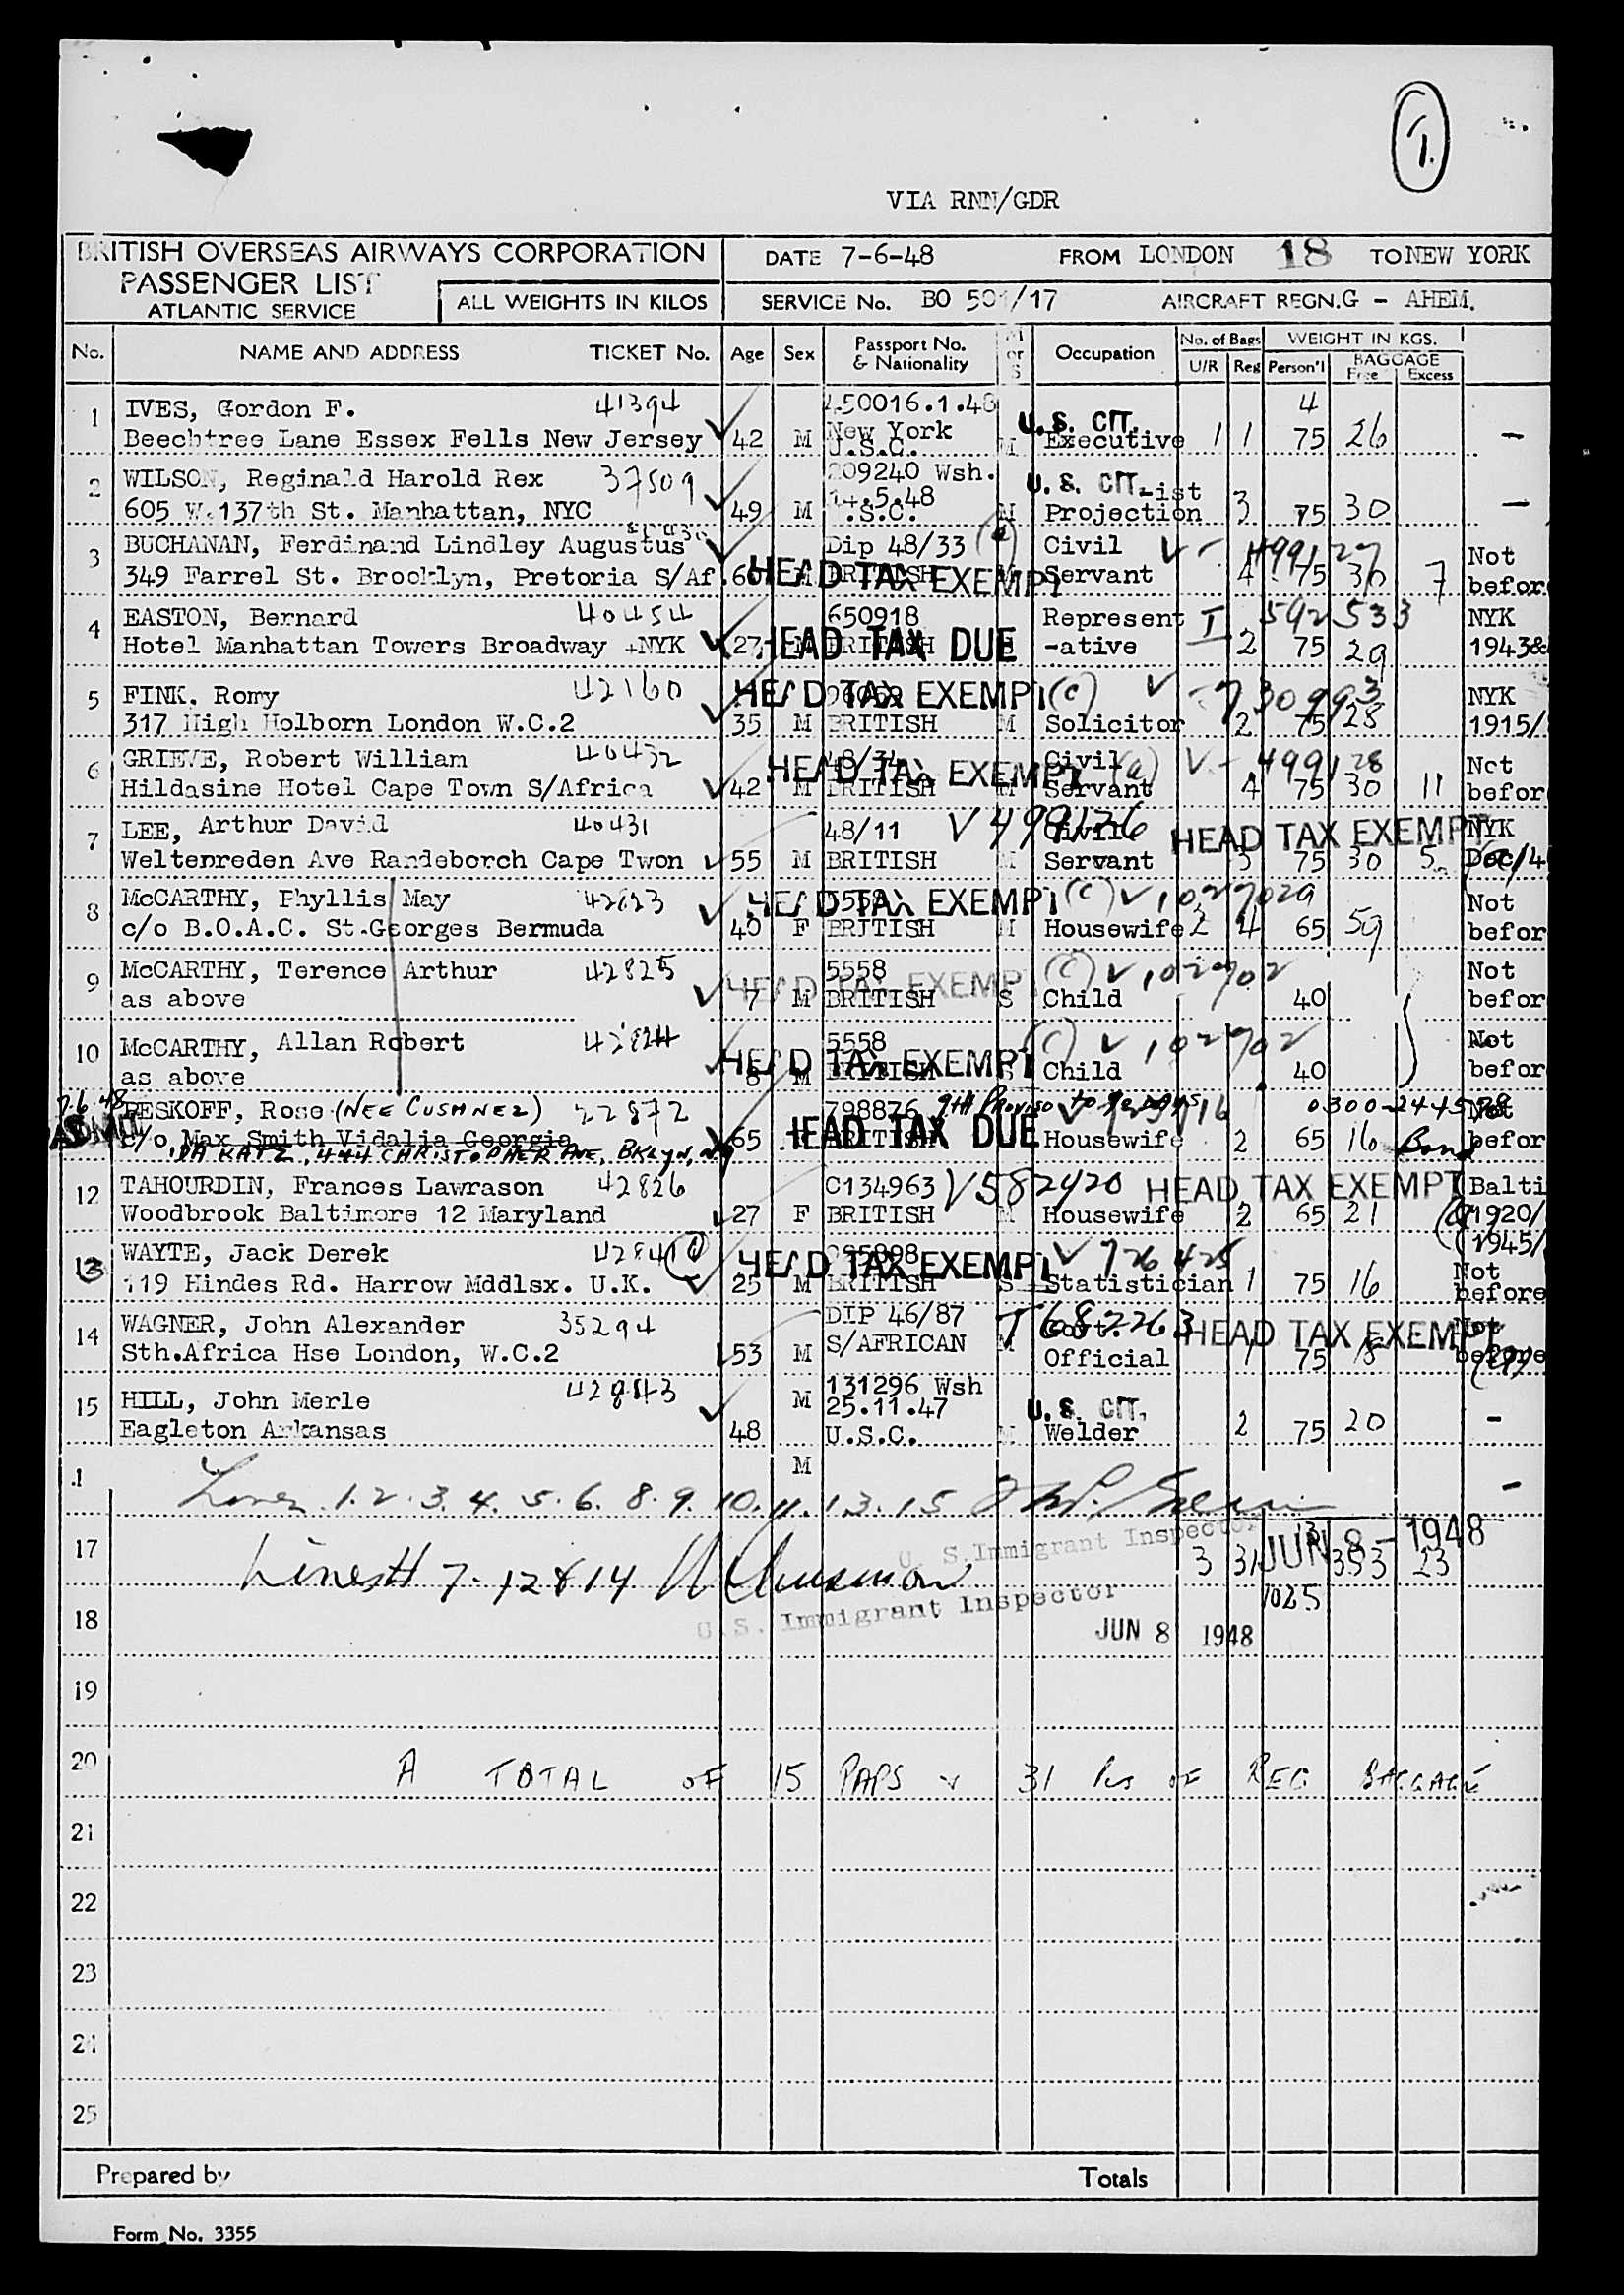 1.
VIA RNN/GDR
BRITISH OVERSEAS AIRWAYS CORPORATION
PASSENGER LIST
ATLANTIC SERVICE
ALL WEIGHTS IN KILOS
DATE 7-6-48 FROM LONDON 18 TO NEW YORK
SERVICE No. BO 501/17 AIRCRAFT REGN. G - AHEM.
No. NAME AND ADDRESS TICKET No. Age Sex Passport No. & Nationality M or S Occupation No. of Bags U/R Reg WEIGHT IN KGS. Person'l BAGGAGE Free Excess
1 IVES, Gordon F. 41394 450016.1.48 U. S. CIT. 4
Beechtree Lane Essex Fells New Jersey 42 M New York U.S.C. M Executive 1 1 75 26 -
2 WILSON, Reginald Harold Rex 37509 209240 Wsh. U. S. CIT. -ist
605 W.137th St. Manhattan, NYC 49 M 14.5.48 U.S.C. M Projection 3 75 30 -
3 BUCHANAN, Ferdinand Lindley Augustus Dip 48/33 (a) Civil V - 499127 Not
349 Farrel St. Brooklyn, Pretoria S/Af. 60 M BRITISH HEAD TAX EXEMPT Servant 4 75 30 7 before
4 EASTON, Bernard 40454 650918 Represent I 592533 NYK
Hotel Manhattan Towers Broadway NYK 27 M BRITISH HEAD TAX DUE -ative 2 75 29 1943&
5 FINK, Romy 42160 HEAD TAX EXEMPT (c) V - 730993 NYK
317 High Holborn London W.C.2 35 M BRITISH M Solicitor 2 75 28 1915/
6 GRIEVE, Robert William 40432 48/34 HEAD TAX EXEMPT Civil (a) V - 499128 Not
Hildasine Hotel Cape Town S/Africa 42 M BRITISH M Servant 4 75 30 11 before
7 LEE, Arthur David 40431 48/11 V 499126 Civil HEAD TAX EXEMPT NYK
Weltenreden Ave Randeborch Cape Twon 55 M BRITISH M Servant 3 75 30 5 Dec/4
8 McCARTHY, Phyllis May 42823 5558 HEAD TAX EXEMPT (c) V 1027029 Not
c/o B.O.A.C. St.Georges Bermuda 40 F BRITISH M Housewife 2 4 65 59 before
9 McCARTHY, Terence Arthur 42825 5558 HEAD TAX EXEMPT (c) V 102702 Not
as above 7 M BRITISH S Child 40 before
10 McCARTHY, Allan Robert 42824 5558 HEAD TAX EXEMPT (c) V 102702 Not
as above 8 M BRITISH S Child 40 before
7.6.48 PESKOFF, Rose (NEE CUSHNER) 22872 798876 9TH Proviso to 0300-244578 Not
ADMIT c/o Max Smith Vidalia Georgia 65 BRITISH HEAD TAX DUE Housewife 2 65 16 Bond before
IDA KATZ, 444 CHRISTOPHER AVE, BKLYN, NY
12 TAHOURDIN, Frances Lawrason 42826 C134963 V582420 HEAD TAX EXEMPT Balti
Woodbrook Baltimore 12 Maryland 27 F BRITISH M Housewife 2 65 21 1920/
1945/
13 WAYTE, Jack Derek HEAD TAX EXEMPT V 726425 Not
119 Hindes Rd. Harrow Mddlsx. U.K. 25 M BRITISH S Statistician 1 75 16 before
14 WAGNER, John Alexander 35294 DIP 46/87 T 682263 Govt. HEAD TAX EXEMPT Not
Sth.Africa Hse London, W.C.2 53 M S/AFRICAN M Official 1 75 18 before
15 HILL, John Merle 42843 M 131296 Wsh 25.11.47 U. S. CIT.
Eagleton Arkansas 48 U.S.C. M Welder 2 75 20 -
M
Lines 1. 2. 3. 4. 5. 6. 8. 9. 10. 11. 13. 15 -
U. S. Immigrant Inspector JUN 8 - 1948
17 Lines 7. 12 & 14 3 31 353 23
U. S. Immigrant Inspector 1025
18 JUN 8 1948
19
20 A TOTAL OF 15 PAPS & 31 Pcs OF REG BAGGAGE
21
22
23
24
25
Prepared by Totals
Form No. 3355